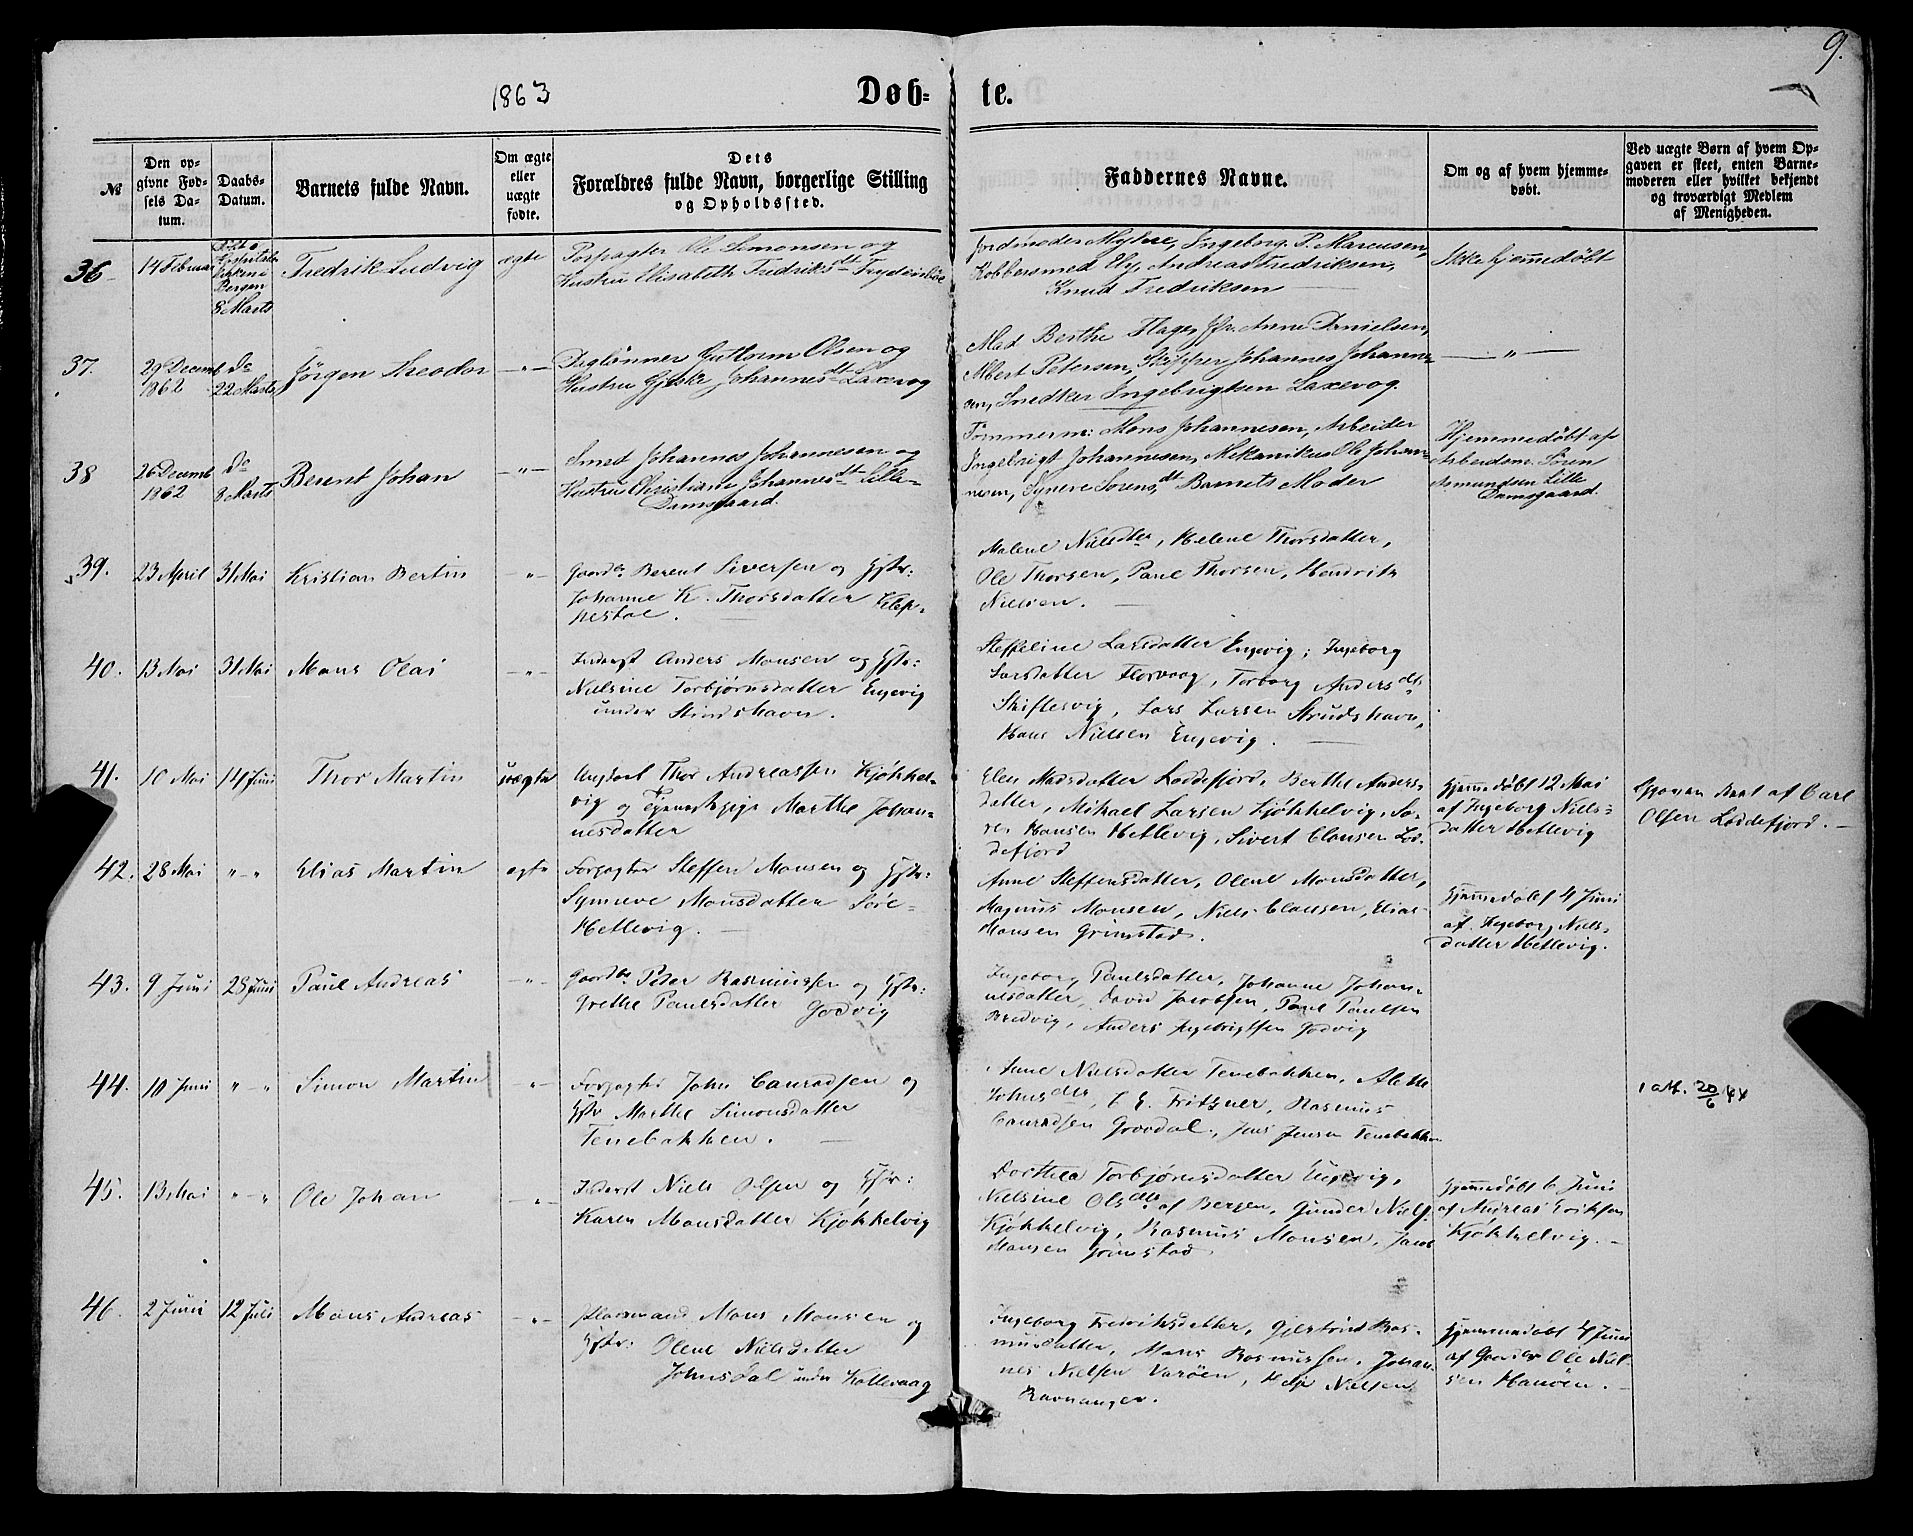 9.
1863
Døb-
te.
№
Den op-
givne Fød-
sels Da-
tum.
Daabs-
Datum.
Barnets fulde Navn.
Om ægte
eller
uægte
fødte.
Dets
Forældres fulde Navn, borgerlige Stilling
og Opholdssted.
Faddernes Navne.
Om og af hvem hjemme-
døbt.
Ved uægte Børn af hvem Op-
gaven er skeet, enten Barne-
moderen eller hvilket bekjendt
og troværdigt Medlem
af Menigheden.
36
14 Februar
Bergen
8 Marts
Fredrik Ludvig
ægte
Forpagter Ole Simonsen og
Hustru Elisabeth Fredriksdt
Jordmoder Myhre, Ingeborg P. Marcussen,
Kobbersmed Ely, Andreas Fredriksen,
Knud Fredriksen
Ikke hjemmedøbt
37.
29 Decemb
1862
Do
22 Marts
Jörgen Theodor
—"—
Gutlorm Olsen og
Hustru Gjeske Johannesdt Laxevog
Mad Berthe Flage, Jfr. Anne Danielsen,
Albert Petersen, Skipper Johannes Johanne-
sen, Snedker Ingebrigtsen Laxevog.
—"—
38
26 Decemb
1862
Do
8 Marts
Berent Johan
—"—
Smed Johannes Johannesen og
Hustru Christiane Johannesdt Lille-
Damsgaard.
Tømmerm: Mons Johannesen, Arbeider
Ingebrigt Johannesen, Mekanikus Ole Johan-
nesen, Synere Sorensdt, Barnets Moder
Hjemmedøbt af
Arbeidsm. Sören
Asmundsen Lille
Damsgaard.
39.
23 April
31 Mai
Kristian Bertin
"-
Gaardbr. Berent Siversen og Hstr:
Johanne K. Thorsdatter Klep-
pestøe.
Malene Nielsdtr, Helene Thorsdatter,
Ole Thorsen, Paul Thorsen, Hendrik
Nielsen.
40.
13 Mai
31 Mai
Mons Olai
-"-
Inderst Anders Monsen og Hstr:
Nielsine Torbjørnsdatter Engevig
under Strudshavn.
Steffeline Larsdatter Engevig, Ingeborg
Larsdatter Florvaag, Torborg Andersdtr
Skiftesvig, Lars Larsen Strudshavn,
Hans Nielsen Engevig.
41.
10 Mai
14 Juni
Thor Martin
uægte
Ungkarl Thor Andreassen Kjøkkel-
vig og Tjenestepige Marthe Johan-
nesdatter
Elen Madsdatter Loddefjord, Berthe Anders-
datter, Mikael Larsen Kjøkkelvig, Sø-
ren Hansen Hetlevig, Sivert Clausen Lod-
defjord
Hjemmedøbt 12 Mai
af Ingeborg Niels-
datter Hetlevig
Opgaven skeet af Carl
Olsen Loddefjord.
42.
28 Mai
"-"
Elias Martin
ægte
Forpagter Steffen Monsen og Hstr:
Synneve Monsdatter Søre-
Hetlevig.
Anne Steffensdatter, Olene Monsdatter,
Magnus Monsen, Niels Clausen, Elias
Hansen Grimstad.
Hjemmedøbt 4 Juni
af Ingeborg Niels-
datter Hetlevig.
43.
9 Juni
28 Juni
Paul Andreas
"-
Gaardbr. Peder Rasmussen og Hstr:
Grethe Paulsdatter Godvig
Ingeborg Paulsdatter, Johanne Johan-
nesdatter, David Jacobsen, Paul Paulsen
Bredvig, Anders Ingebrigtsen Godvig
44.
10 Juni
"-"
Simon Martin
"-
Forpagter John Conradsen og
Hstr Marthe Simonsdatter
Tenebakken.
Anne Nielsdatter Tenebakken, Alethe
Johnsdtr, C E. Fritzner, Rasmus
Conradsen Gravdal, Jens Jensen Tenebakken
1 att. 20/6 44
45.
13 Mai
"-"
Ole Johan
-"-
Inderst Niels Olsen og Hstr:
Karen Monsdatter Kjøkkelvig
Dorthea Torbjørnsdatter Engevig,
Nielsine Olsdtr af Bergen, Gunder Niels.
Kjøkkelvig, Rasmus Monsen, Jacob
Hansen Grimstad
Hjemmedøbt 6 Juni
af Andreas Eriksen
Kjøkkelvig.
46.
2 Juni
12 Juli
Mons Andreas
-"-
Pladsmand Mons Monsen og
Hstr: Olene Nielsdatter
Johnsdal under Kollevaag
Ingeborg Fredriksdatter, Gjertrud Ras-
musdatter, Mons Rasmussen, Johan-
nes Nielsen Varøen, Helje Nielsen
Ravnanger.
Hjemmedøbt 4 Juni
af Gaardbr Ole Niel-
sen Hanøen.